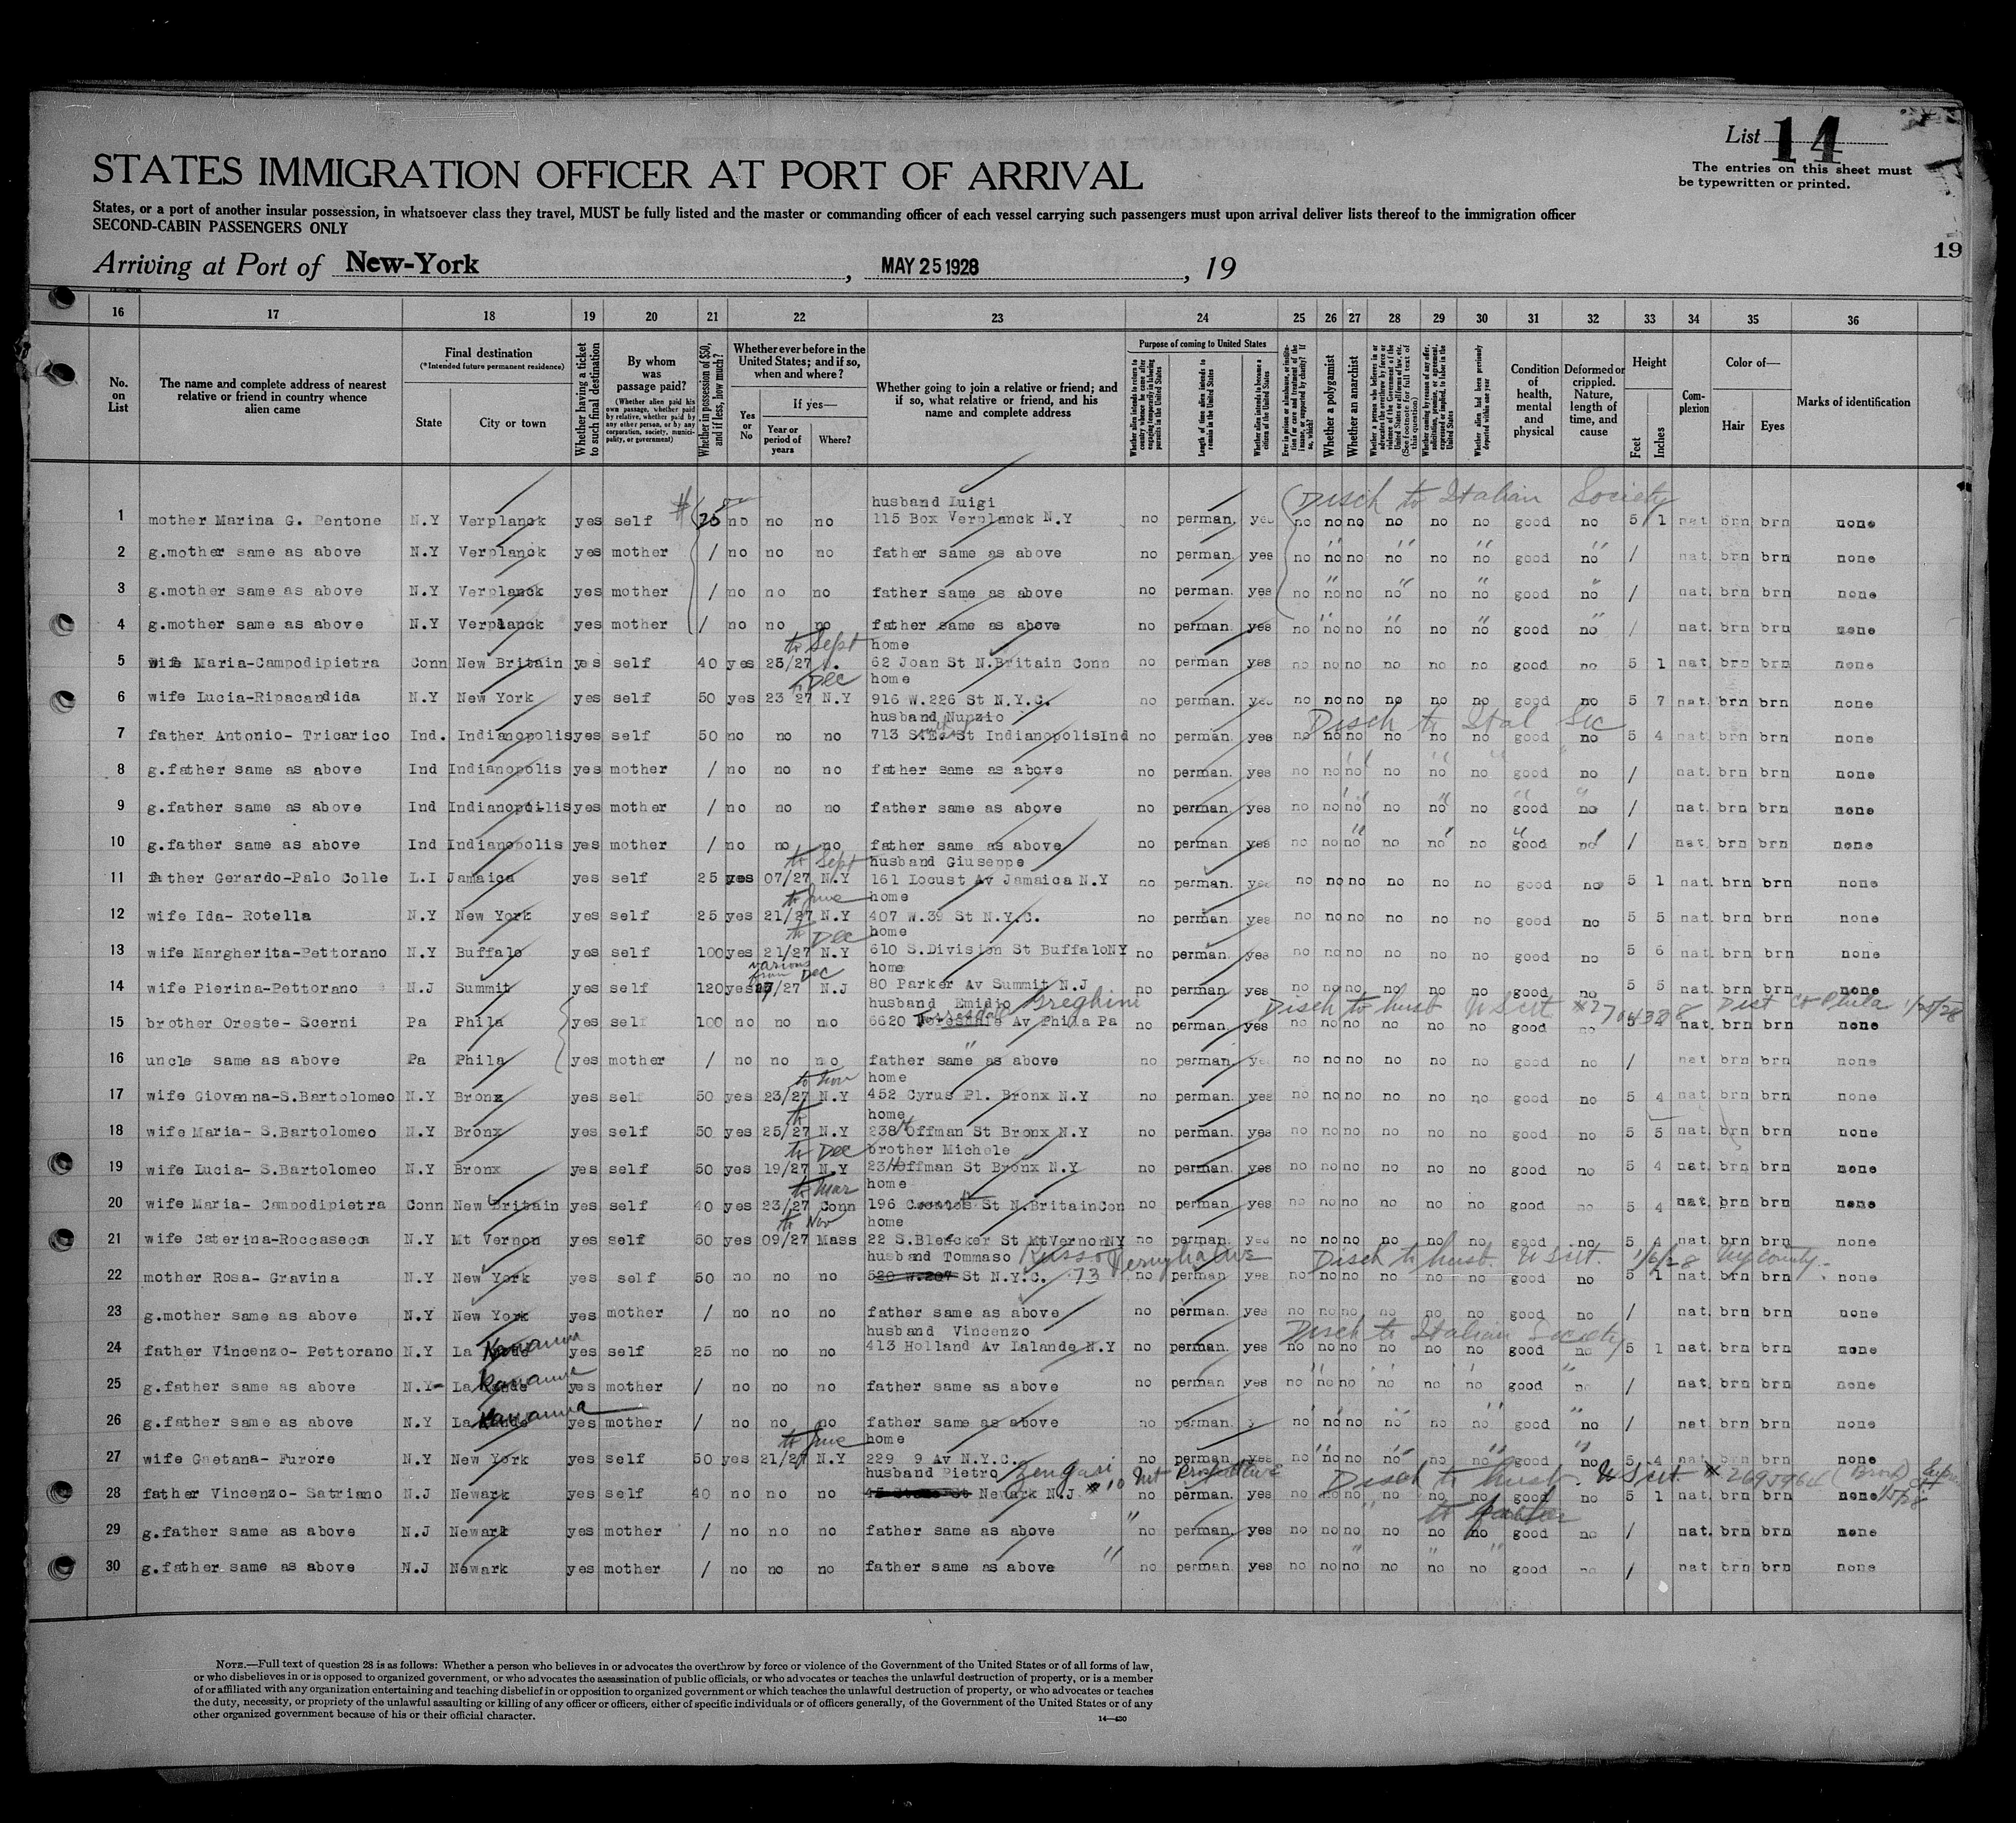 List 14
The entries on this sheet must
be typewritten or printed.
STATES IMMIGRATION OFFICER AT PORT OF ARRIVAL
States, or a port of another insular possession, in whatsoever class they travel, MUST be fully listed and the master or commanding officer of each vessel carrying such passengers must upon arrival deliver lists thereof to the immigration officer
SECOND-CABIN PASSENGERS ONLY
19
Arriving at Port of New-York, MAY 25 1928, 19
16 17 18 19 20 21 22 23 24 25 26 27 28 29 30 31 32 33 34 35 36
No. on List
The name and complete address of nearest relative or friend in country whence alien came
Final destination
(*Intended future permanent residence)
State
City or town
Whether having a ticket to such final destination
By whom was passage paid?
(Whether alien paid his own passage, whether paid by relative, whether paid by any other person, or by any corporation, society, municipality, or government)
Whether in possession of $50, and if less, how much?
Whether ever before in the United States; and if so, when and where?
Yes or No
If yes—
Year or period of years
Where?
Whether going to join a relative or friend; and if so, what relative or friend, and his name and complete address
Purpose of coming to United States
Whether alien intends to return to country whence he came after engaging temporarily in laboring pursuits in the United States
Length of time alien intends to remain in the United States
Whether alien intends to become a citizen of the United States
Whether a polygamist
Whether an anarchist
Whether alien had been previously deported within one year
Condition of health, mental and physical
Deformed or crippled. Nature, length of time, and cause
Height
Feet
Inches
Complexion
Color of—
Hair
Eyes
Marks of identification
Disch to Italian Society
husband Luigi
1 mother Marina G. Pentone N.Y Verplanck yes self 25 no no no 115 Box Verplanck N.Y no perman. yes no no no no no no good no 5 1 nat brn brn none
2 g.mother same as above N.Y Verplanck yes mother / no no no father same as above no perman. yes no no no no no no good no / nat. brn brn none
3 g.mother same as above N.Y Verplanck yes mother / no no no father same as above no perman. yes no no no no no no good no / nat. brn brn none
4 g.mother same as above N.Y Verplanck yes mother / no no no father same as above no perman. yes no no no no no no good no / nat. brn brn none
to Sept home
5 wife Maria-Campodipietra Conn New Britain yes self 40 yes 25/27 62 Joan St N.Britain Conn no perman yes no no no no no no good no 5 1 nat. brn brn none
to Dec home
6 wife Lucia-Ripacandida N.Y New York yes self 50 yes 23 27 N.Y 916 W.226 St N.Y.C. no perman. yes no no no no no no good no 5 7 nat. brn brn none
husband Nunzio Disch to Ital Soc
7 father Antonio- Tricarico Ind. Indianapolis yes self 50 no no no 713 St IndianapolisInd no perman. yes no no no no no no good no 5 4 nat. brn brn none
8 g.father same as above Ind Indianopolis yes mother / no no no father same as above no perman. yes no no no no no no good no / nat. brn brn none
9 g.father same as above Ind Indianopolis yes mother / no no no father same as above no perman. yes no no no no no no good no / nat. brn brn none
10 g.father same as above Ind Indianopolis yes mother / no no no father same as above no perman. yes no no no no no no good no / nat. brn brn none
to Sept husband Giuseppe
11 father Gerardo-Palo Colle L.I Jamaica yes self 25 yes 07/27 N.Y 161 Locust Av Jamaica N.Y no perman. yes no no no no no no good no 5 1 nat. brn brn none
to June home
12 wife Ida- Rotella N.Y New York yes self 25 yes 21/27 N.Y 407 W.39 St N.Y.C. no perman. yes no no no no no no good no 5 5 nat. brn brn none
to Dec home
13 wife Margherita-Pettorano N.Y Buffalo yes self 100 yes 21/27 N.Y 610 S.Division St BuffaloNY no perman. yes no no no no no no good no 5 6 nat. brn brn none
various from Dec home
14 wife Pierina-Pettorano N.J Summit yes self 120 yes /27 N.J 80 Parker Av Summit N.J no perman. yes no no no no no no good no 5 5 nat. brn brn none
husband Emidio Greghini Disch to husb U S cit #2704328 Dist Ct Phila 1/25/28
15 brother Oreste- Scerni Pa Phila yes self 100 no no no 6620 Av Phila Pa no perman. yes no no no no no no good no 5 4 nat. brn brn none
16 uncle same as above Pa Phila yes mother / no no no father same as above no perman. yes no no no no no no good no / nat brn brn none
to Nov home
17 wife Giovanna-S.Bartolomeo N.Y Bronx yes self 50 yes 23/27 N.Y 452 Cyrus Pl. Bronx N.Y no perman. yes no no no no no no good no 5 4 nat. brn brn none
to home
18 wife Maria- S.Bartolomeo N.Y Bronx yes self 50 yes 25/27 N.Y 238 Hoffman St Bronx N.Y no perman. yes no no no no no no good no 5 5 nat. brn brn none
to Dec brother Michele
19 wife Lucia- S.Bartolomeo N.Y Bronx yes self 50 yes 19/27 N.Y 23 Hoffman St Bronx N.Y no perman. yes no no no no no no good no 5 4 nat. brn brn none
to Mar home
20 wife Maria- Campodipietra Conn New Britain yes self 40 yes 23/27 Conn 196 St N.BritainCon no perman. yes no no no no no no good no 5 4 nat. brn brn none
to Nov home
21 wife Caterina-Roccaseca N.Y Mt Vernon yes self 50 yes 09/27 Mass 22 S.Bleecker St MtVernonNY no perman. yes no no no no no no good no 5 4 nat. brn brn none
husband Tommaso Russo Disch to husb. U S cit. 1/6/28 NY County
22 mother Rosa- Gravina N.Y New York yes self 50 no no no 520 W.207 St N.Y.C. 73 no perman yes no no no no no no good no 5 1 nat. brn brn none
23 g.mother same as above N.Y New York yes mother / no no no father same as above no perman. yes no no no no no no good no / nat. brn brn none
husband Vincenzo Disch to Italian Society
24 father Vincenzo- Pettorano N.Y La yes self 25 no no no 413 Holland Av Lalande N.Y no perman. yes no no no no no no good no 5 1 nat. brn brn none
25 g.father same as above N.Y La yes mother / no no no father same as above no perman yes no no no no no no good no / nat. brn brn none
26 g.father same as above N.Y La yes mother / no no no father same as above no perman. no no no no no no good no / nat brn brn none
to June home
27 wife Gaetana- Furore N.Y New York yes self 50 yes 21/27 N.Y 229 9 Av N.Y.C. no perman yes no no no no no no good no 5 4 nat brn brn none
husband Pietro Zengari Mt Prospect Ave Disch to husb. U S cit
28 father Vincenzo- Satriano N.J Newark yes self 40 no no no Newark N.J #10 no perman. yes no no no no no no good no 5 1 nat. brn brn none
to father
29 g.father same as above N.J Newark yes mother / no no no father same as above " no perman. yes no no no no no no good no / nat. brn brn none
30 g.father same as above N.J Newark yes mother / no no no father same as above " no perman. yes no no no no no no good no / nat brn brn none
NOTE.—Full text of question 28 is as follows: Whether a person who believes in or advocates the overthrow by force or violence of the Government of the United States or of all forms of law,
or who disbelieves in or is opposed to organized government, or who advocates the assassination of public officials, or who advocates or teaches the unlawful destruction of property, or is a member
of or affiliated with any organization entertaining and teaching disbelief in or opposition to organized government or which teaches the unlawful destruction of property, or who advocates or teaches
the duty, necessity, or propriety of the unlawful assaulting or killing of any officer or officers, either of specific individuals or of officers generally, of the Government of the United States or of any
other organized government because of his or their official character.
14—430